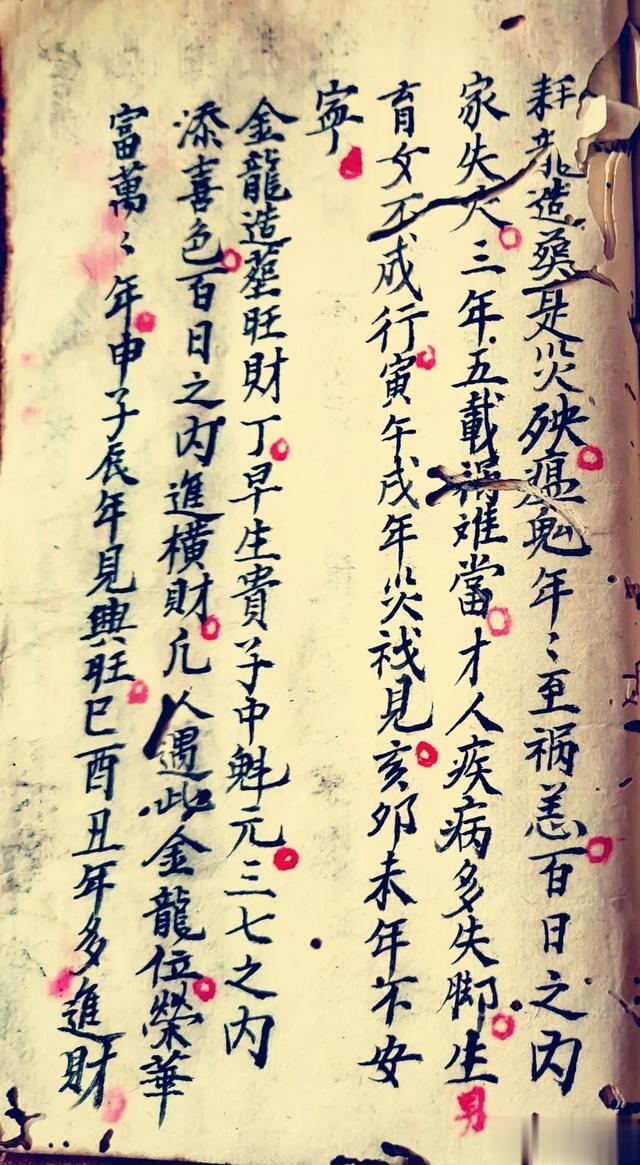 耗龍造塟是災殃瘟鬼年〻至祸恙百日之内
家失火三年五載禍难當才人疾病多失脚生男
育女不成行寅午戌年災祸見亥卯未年不安
寧
金龍造塟旺財丁早生貴子中魁元三七之内
添喜色百日之内進横財凢人遇此金龍位榮華
富萬〻年申子辰年見興旺巳酉丑年多進財